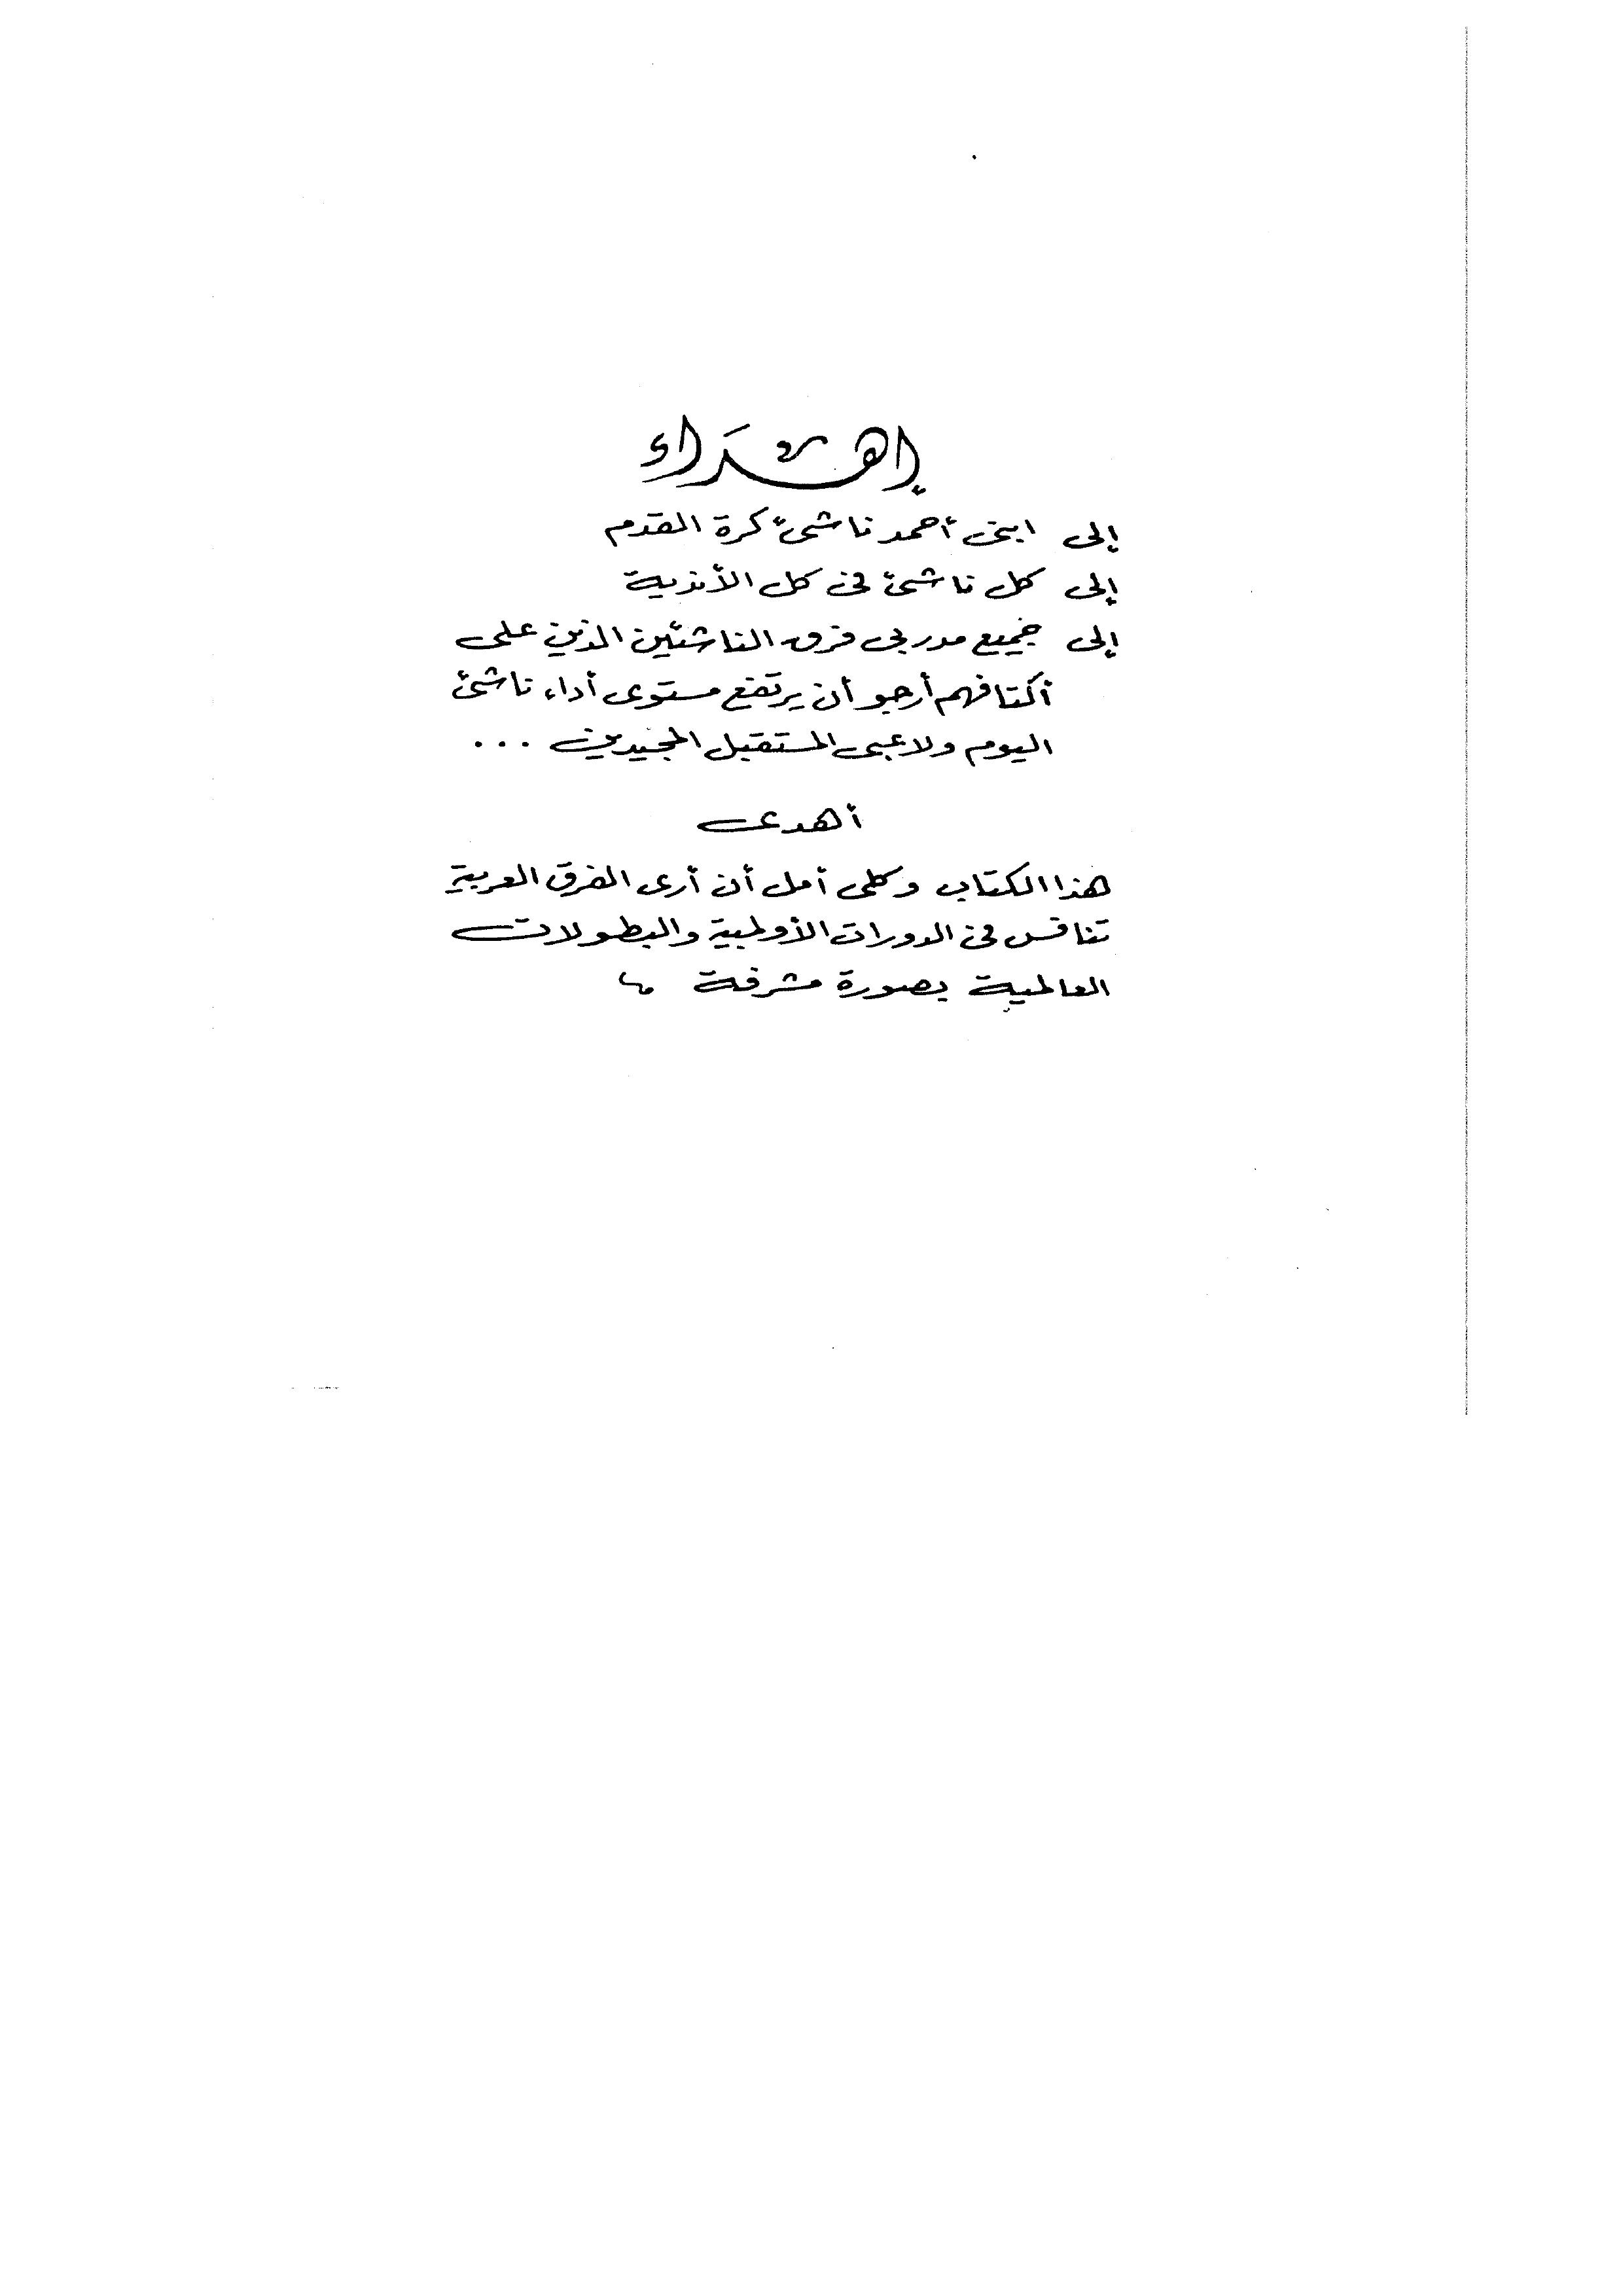 إهداء
إلى ابنى أحمد ناشئ كرة القدم
إلى كل ناشئ فى كل الأندية
إلى جميع مدربى فرق الناشئين الذين على
أكتافهم أرجو أن يرتفع مستوى أداء ناشئ
اليوم ولاعبى المستقبل المجيدين ...
أهدى
هذا الكتاب وكلى أمل أن أرى الفرق العربية
تنافس فى الدورات الأولمبية والبطولات
العالمية بصورة مشرفة